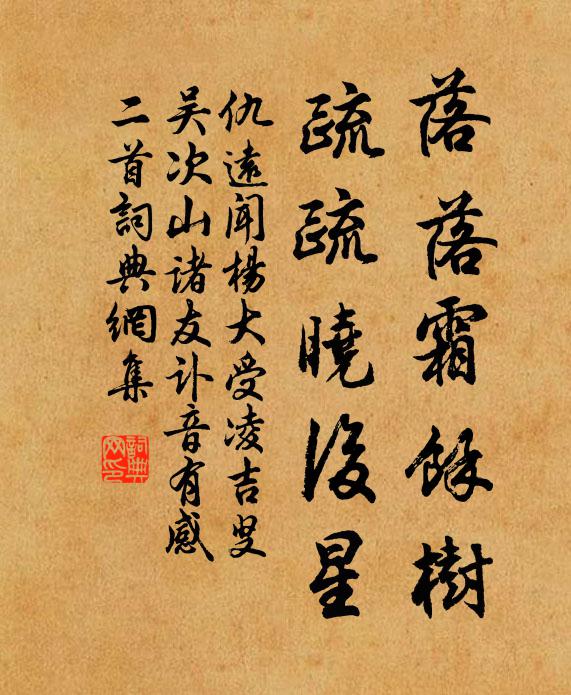 落落霜餘樹
疏疏曉後星
仇遠聞楊大受凌吉叟
吴次山諸友訃音有感
二首詞典網集
詞典网印